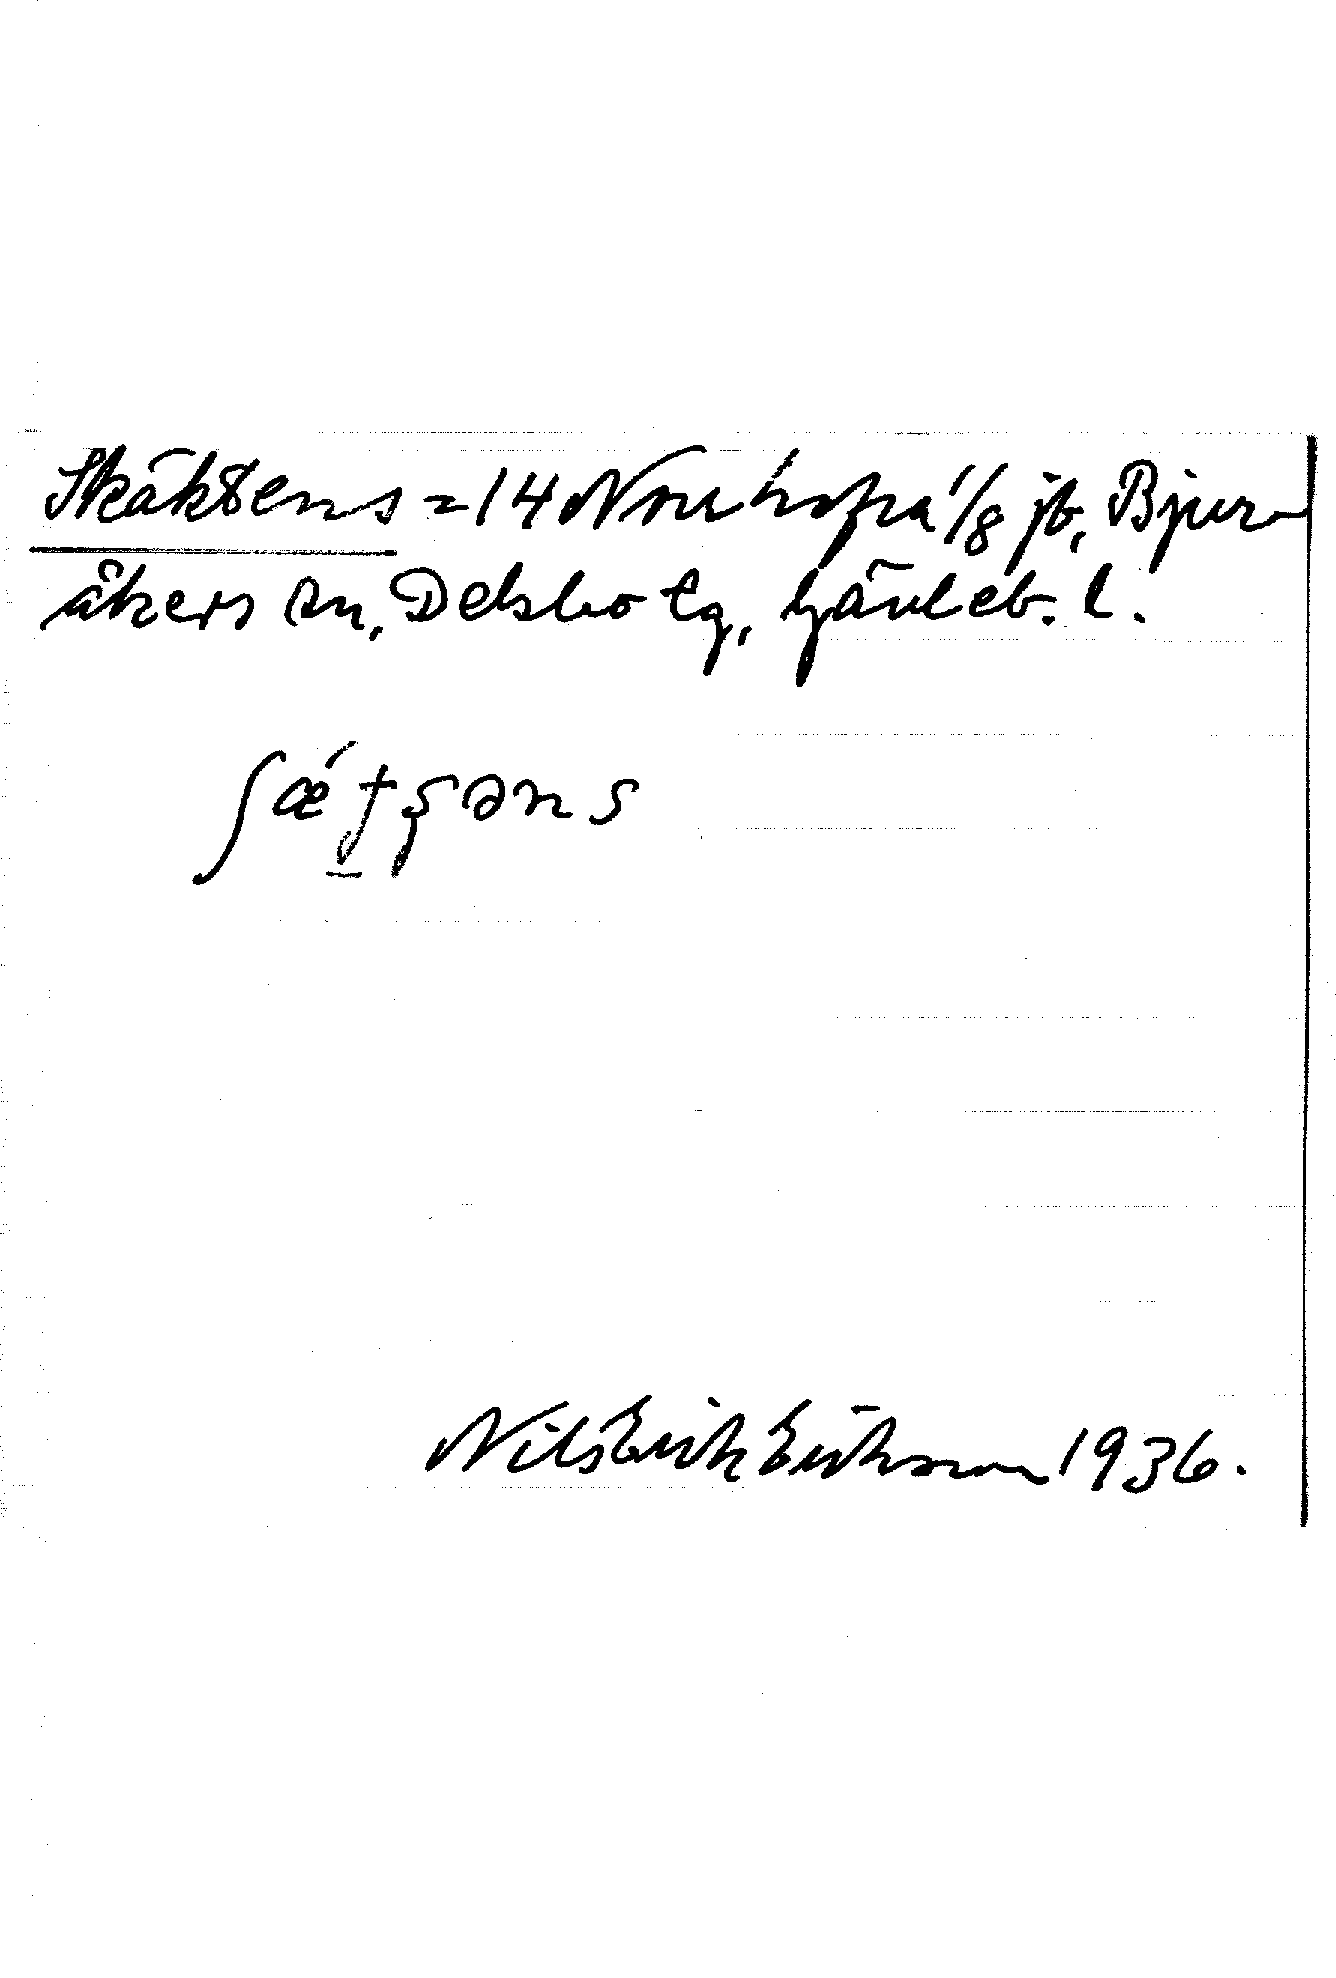 Skäktens = 14 Norrhavra 1/8 jb, Bjur-
åkers sn, Delsbo tg, Gävleb. l.
ʃǽɟʂəns
Nils Erik Eriksson 1936.